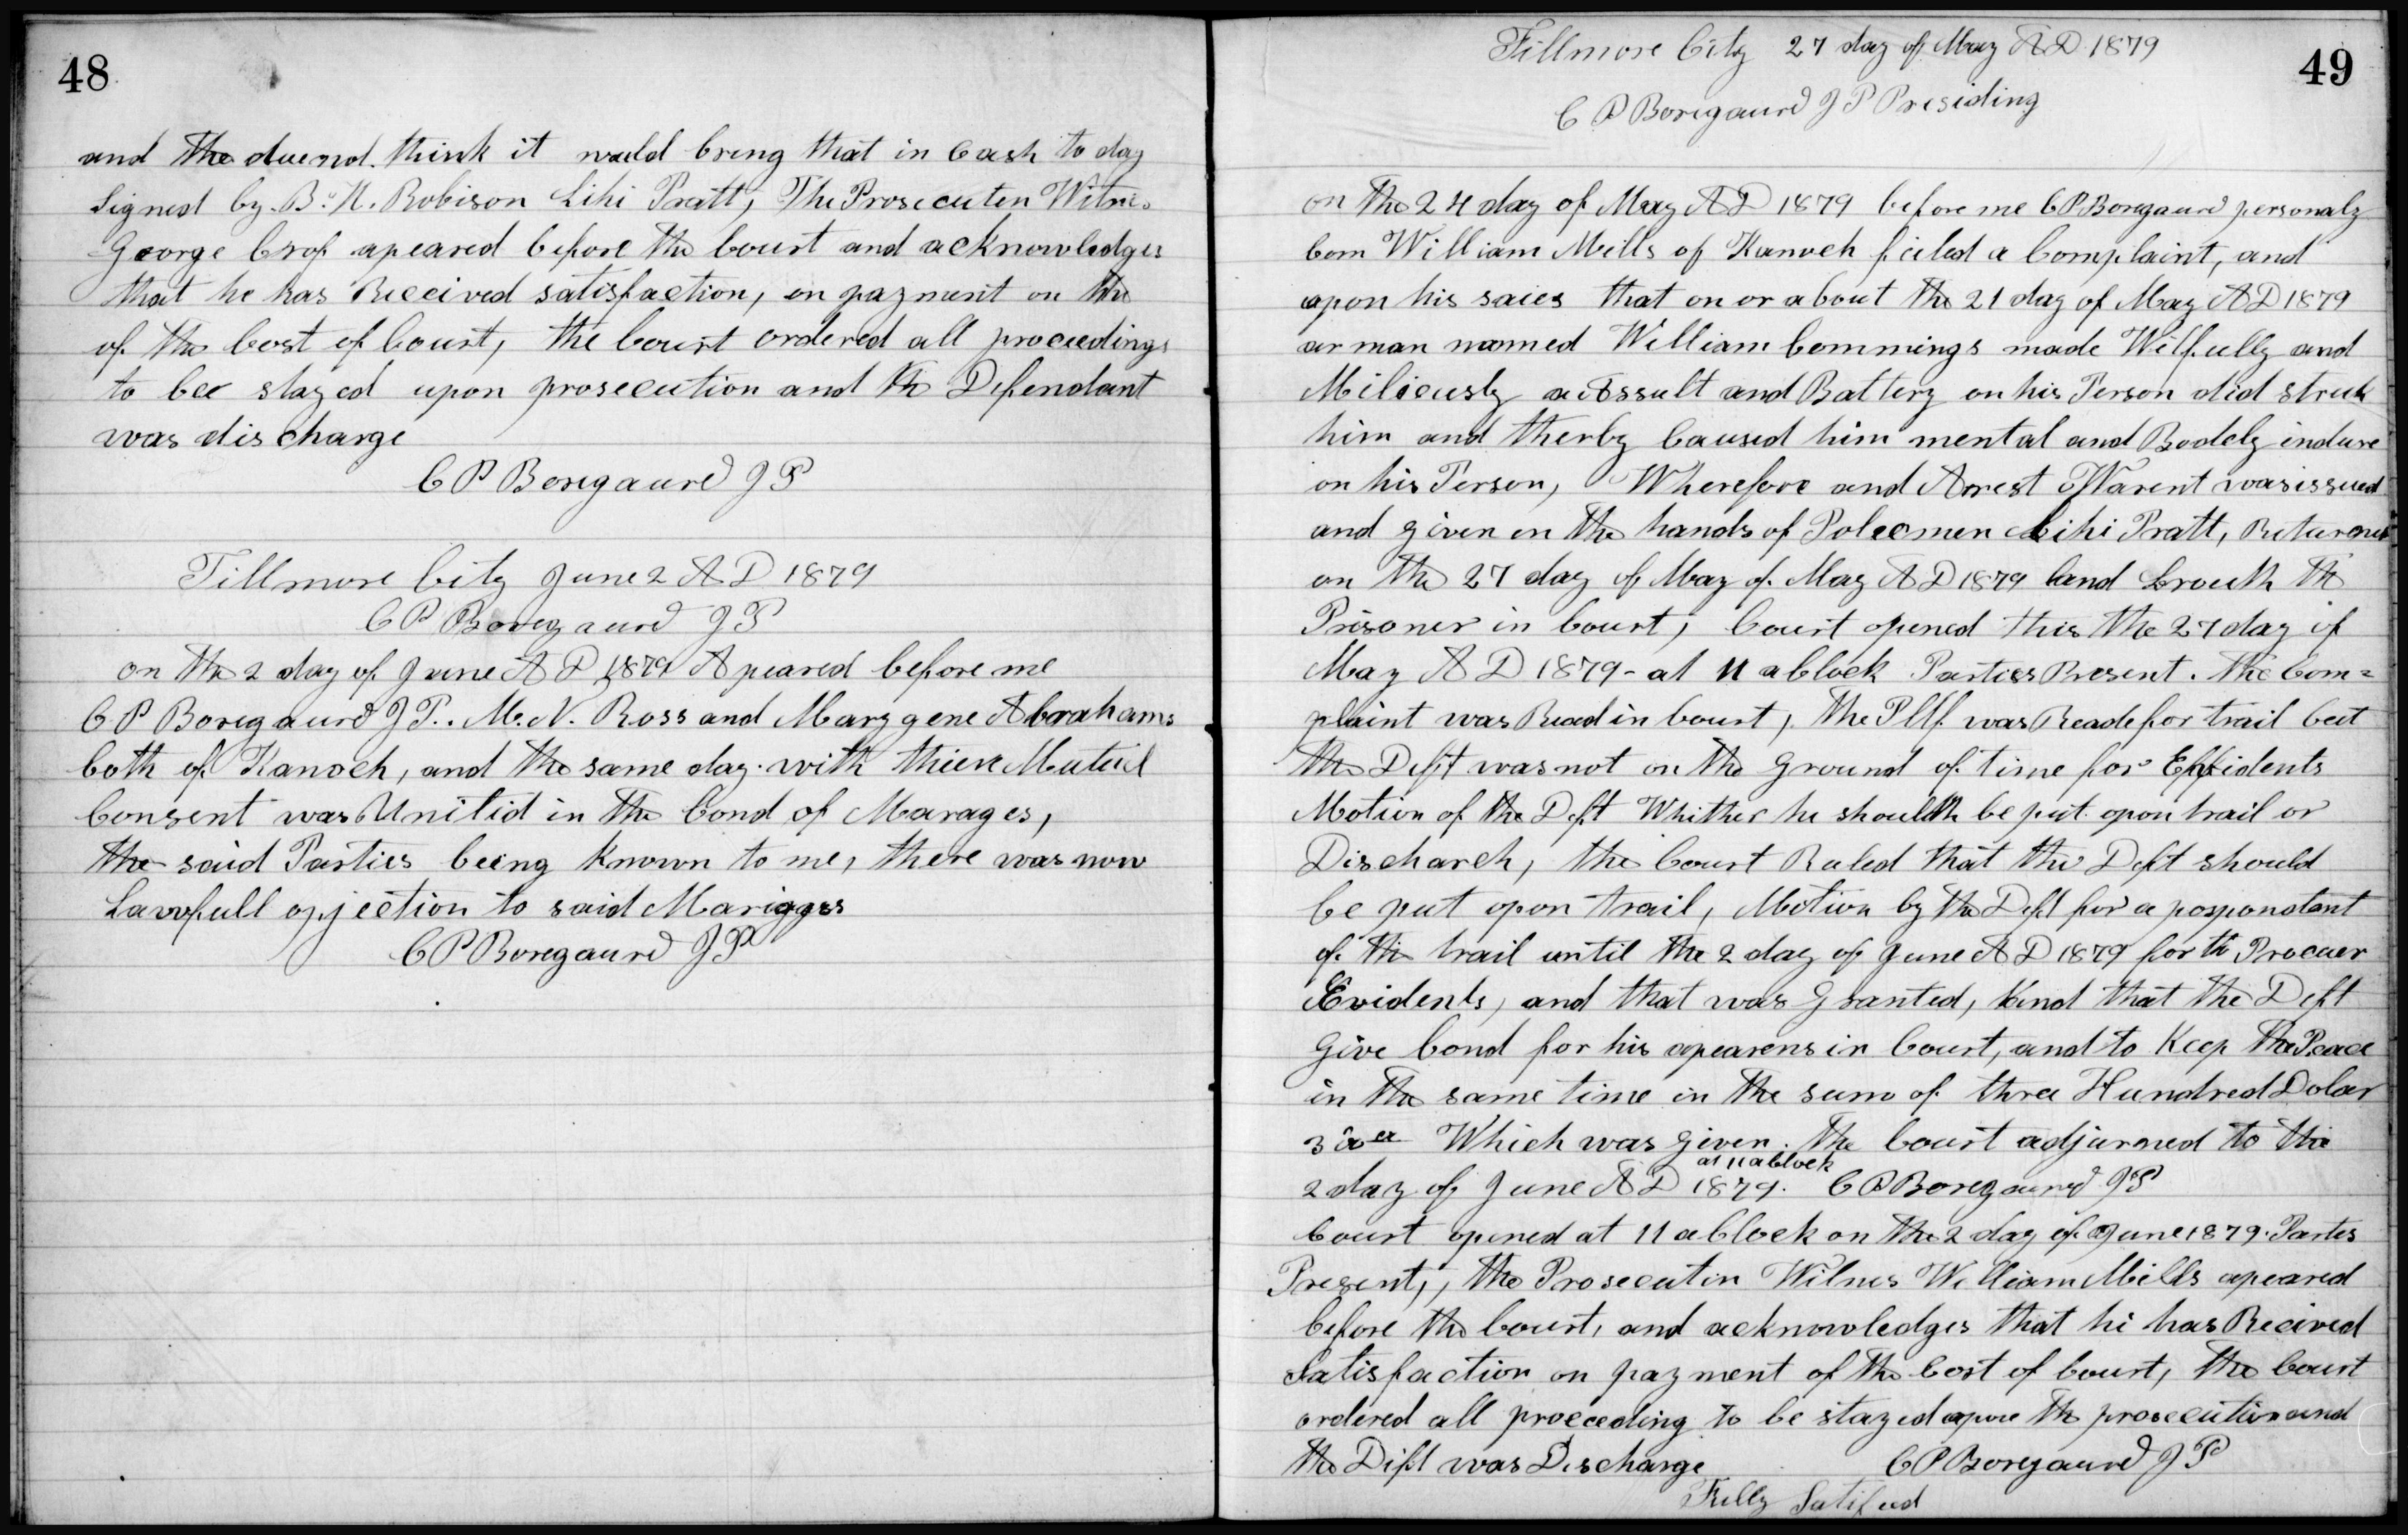 48
and the due not think it would bring that in Cash to day
Signed by B. H. Robison Lihi Pratt, The Prosecuten Witnes
George Crof apeared before the Court and acknowledges
that he has Received satisfaction, on payment on the
of the Cost of Court, the Court ordered all proceedings
to bee stayed upon prosecution and the Defendant
was discharge
C P Boregaurd J P
Fillmore City June 2 A D 1879
C P Boregaurd J P
on the 2 day of June A D 1879 Apeared before me
C P Boregaurd J P. M. N. Ross and Marygene Abrahams
both of Kanoch, and the same day with thiere Muteul
Consent was Unitid in the bond of Marages,
the said Parties being known to me, there was now
Lawfull opjection to said Marigges
C P Boregaurd J P
49
Fillmore City 27 day of May A D 1879
C P Boregaurd J P Presiding
on the 24 day of May A D 1879 before me C P Boregaurd personaly
Com William Mills of Kanoch filed a Complaint, and
upon his saies that on or about the 21 day of May A D 1879
ar man named William Commings made Wilfully and
Miliceusly a Assult and Battery on his Person did struk
him and therby Caused him mental and Bodely indure
on his Person, Wherefore and Arrest Warent was issued
and given in the hands of Polecmen Lihi Pratt, Returned
on the 27 day of May of May A D 1879 and brouth the
Prisoner in Court, Court opened this the 27 day of
May A D 1879 - at 11 a Clock Parties Present. the Com=
plaint was Read in Court, the Pltf was Reade for trail but
the Deft was not on the ground of time for Effidents
Motion of the Deft Whither he should be put upon trail or
Discharch, the Court Ruled that the Deft should
be put upon trail, Motion by the Deft for a posponotent
of the trail until the 2 day of June A D 1879 for to Procuer
Evidents, and that was Granted, and that the Deft
Give bond for his apearens in Court, and to Keep the Peace
in the same time in the sum of three Hundred Dolar
300 Which was given. The Court adjurned to the
at 11 a Clock
2 day of June A D 1879. C P Boregaurd J P
Court opened at 11 a Clock on the 2 day of June 1879. Partes
Present,, the Prosecutin Witnes William Mills apeared
before the Court, and acknowledges that hi has Recived
Satisfaction on payment of the Cost of Court, the Court
ordered all proceeding to be stayed apon the prosecution and
the Dift was Discharge C P Boregaurd J P
Fully Satifued